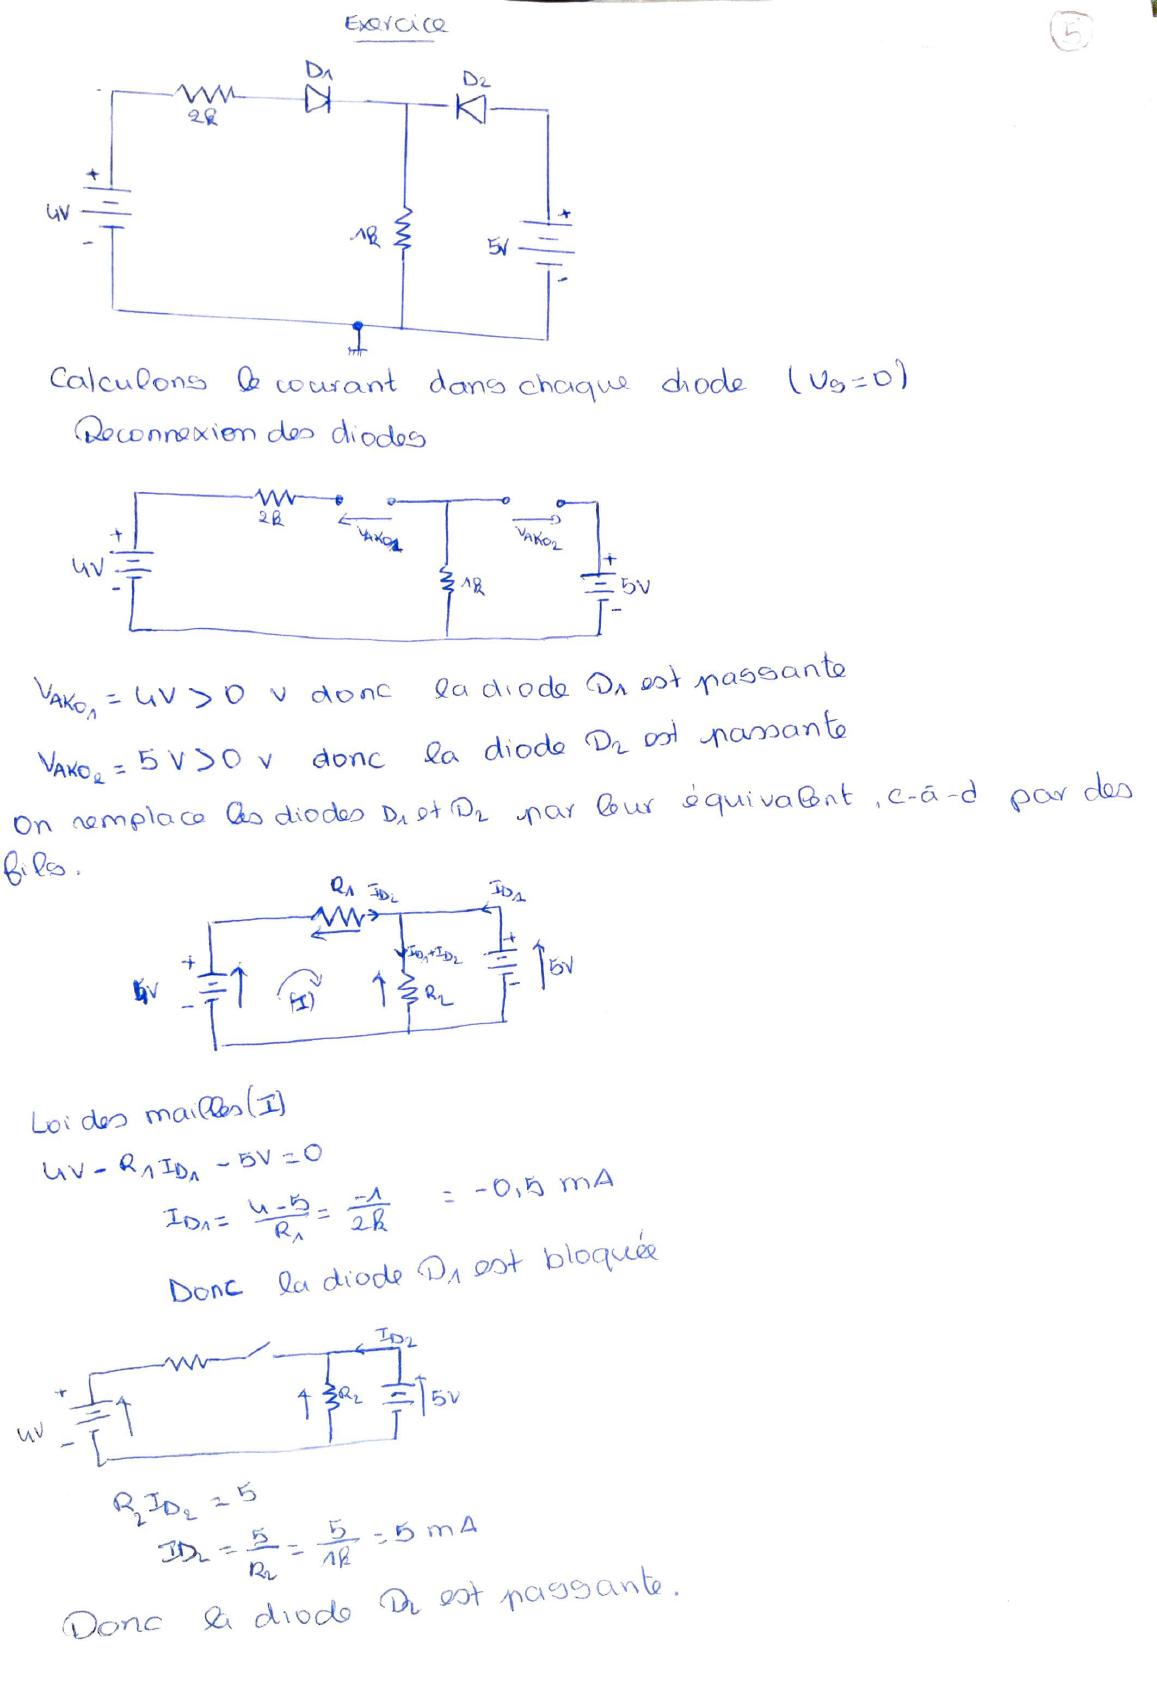 Exercice
5
D1
D2
2k
+
4V
-
1k
5V
+
-
Calculons le courant dans chaque diode (Us=0)
Deconnexion des diodes
2k
VAKO1
VAKO2
+
4V
-
1k
+
5V
-
VAKO1 = 4V > 0 v donc la diode D1 est passante
VAKO2 = 5 V > 0 v donc la diode D2 est passante
On remplace les diodes D1 et D2 par leur équivalent, c-à-d par des
fils.
R1 ID2
ID1
+
4V
-
(I)
ID1+ID2
R2
+
5V
-
Loi des mailles (I)
4V - R1 ID1 - 5V = 0
ID1 = 4-5/R1 = -1/2k = -0,5 mA
Donc la diode D1 est bloquée
ID2
+
4V
-
R2
5V
R2 ID2 = 5
ID2 = 5/R2 = 5/1k = 5 mA
Donc la diode D2 est passante.